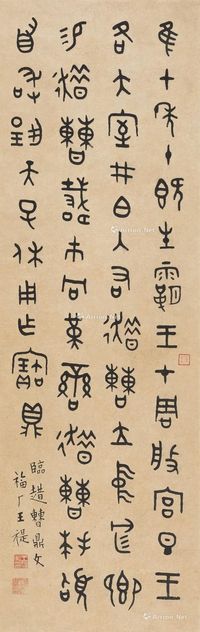 隹七年十既生霸王才周般宮旦王
各大室井白入右趞曹立中廷北鄉
易趞曹𢧵巿冋黃䜌趞曹拜𩒨
首敢對揚天子休用乍寶鼎
臨趞曹鼎文
福厂王禔